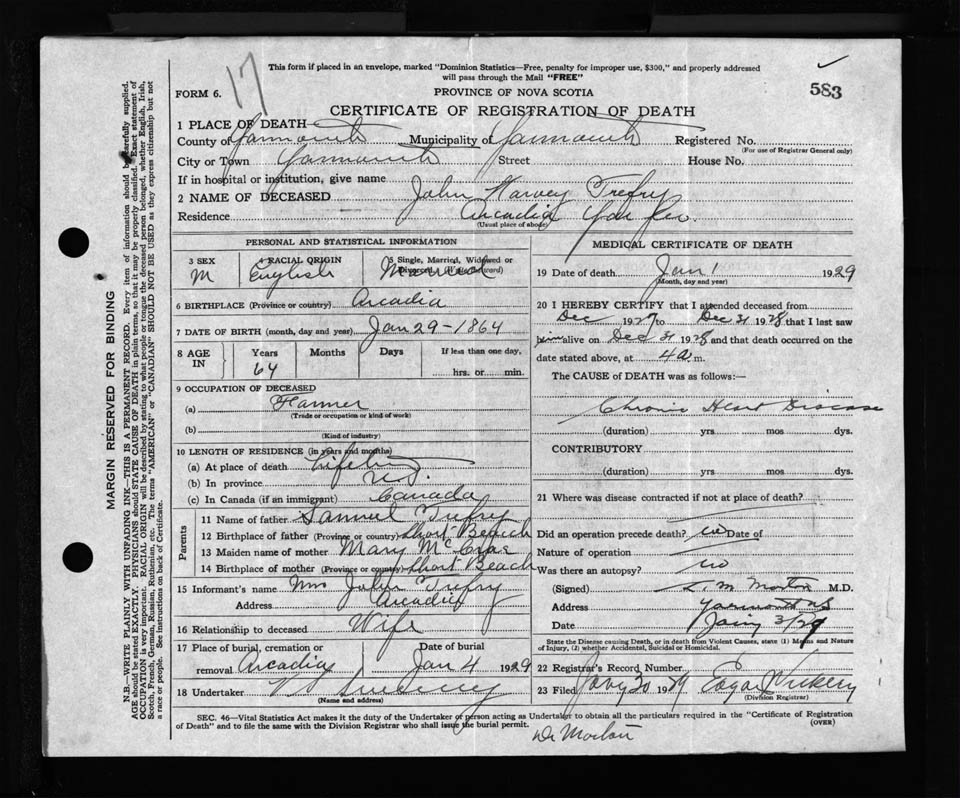 17
583
This form if placed in an envelope, marked "Dominion Statistics—Free, penalty for improper use, $300," and properly addressed
will pass through the Mail "FREE"
FORM 6.
PROVINCE OF NOVA SCOTIA
CERTIFICATE OF REGISTRATION OF DEATH
1 PLACE OF DEATH
County of Yarmouth Municipality of Yarmouth Registered No.
(For use of Registrar General only)
City or Town Yarmouth Street House No.
If in hospital or institution, give name
2 NAME OF DECEASED John Harvey Trefry
Residence Arcadia Yar
(Usual place of abode)
PERSONAL AND STATISTICAL INFORMATION
3 SEX M
4 RACIAL ORIGIN English
5 Single, Married, Widowed or Divorced (Write the word) Married
6 BIRTHPLACE (Province or country) Arcadia
7 DATE OF BIRTH (month, day and year) Jan 29-1864
8 AGE IN Years 64 Months Days If less than one day, hrs. or min.
9 OCCUPATION OF DECEASED
(a) Farmer
(Trade or occupation or kind of work)
(b)
(Kind of industry)
10 LENGTH OF RESIDENCE (in years and months)
(a) At place of death Lifetime
(b) In province
(c) In Canada (if an immigrant) Canada
Parents
11 Name of father Samuel Trefry
12 Birthplace of father (Province or country) Short Beach
13 Maiden name of mother Mary
14 Birthplace of mother (Province or country) Short Beach
15 Informant's name Mrs John Trefry
Address Arcadia
16 Relationship to deceased Wife
17 Place of burial, cremation or removal Arcadia
Date of burial Jan 4 1929
18 Undertaker V S Sweeny
(Name and address)
MEDICAL CERTIFICATE OF DEATH
19 Date of death Jan 1 1929
(Month, day and year)
20 I HEREBY CERTIFY that I attended deceased from
Dec 1927 to Dec 31 1928 that I last saw
him alive on Dec 31 1928 and that death occurred on the
date stated above, at 4 a m.
The CAUSE of DEATH was as follows:—
Chronic Heart Disease
(duration) yrs mos dys.
CONTRIBUTORY
(duration) yrs. mos dys.
21 Where was disease contracted if not at place of death?
Did an operation precede death? no Date of
Nature of operation
Was there an autopsy? no
(Signed) L. M. Morton M.D.
Address Yarmouth NS
Date Jany 3/29
State the Disease causing Death, or in death from Violent Causes, state (1) Means and Nature
of Injury, (2) whether Accidental, Suicidal or Homicidal.
22 Registrar's Record Number
23 Filed Jany 30 1929 Edgar Vickery
(Division Registrar)
SEC. 46—Vital Statistics Act makes it the duty of the Undertaker or person acting as Undertaker to obtain all the particulars required in the "Certificate of Registration
of Death" and to file the same with the Division Registrar who shall issue the burial permit.
(OVER)
Dr Morton
MARGIN RESERVED FOR BINDING
N.B.—WRITE PLAINLY WITH UNFADING INK—THIS IS A PERMANENT RECORD. Every item of information should be carefully supplied.
AGE should be stated EXACTLY. PHYSICIANS should STATE CAUSE OF DEATH in plain terms, so that it may be properly classified. Exact statement of
OCCUPATION is very important. RACIAL ORIGIN will be described by stating to what people or tongue the deceased person belonged, whether English, Irish,
Scotch, French, German, Russian, Ruthenian, etc. The terms "AMERICAN" or "CANADIAN" SHOULD NOT BE USED as they express citizenship but not
a race or people. See instructions on back of Certificate.